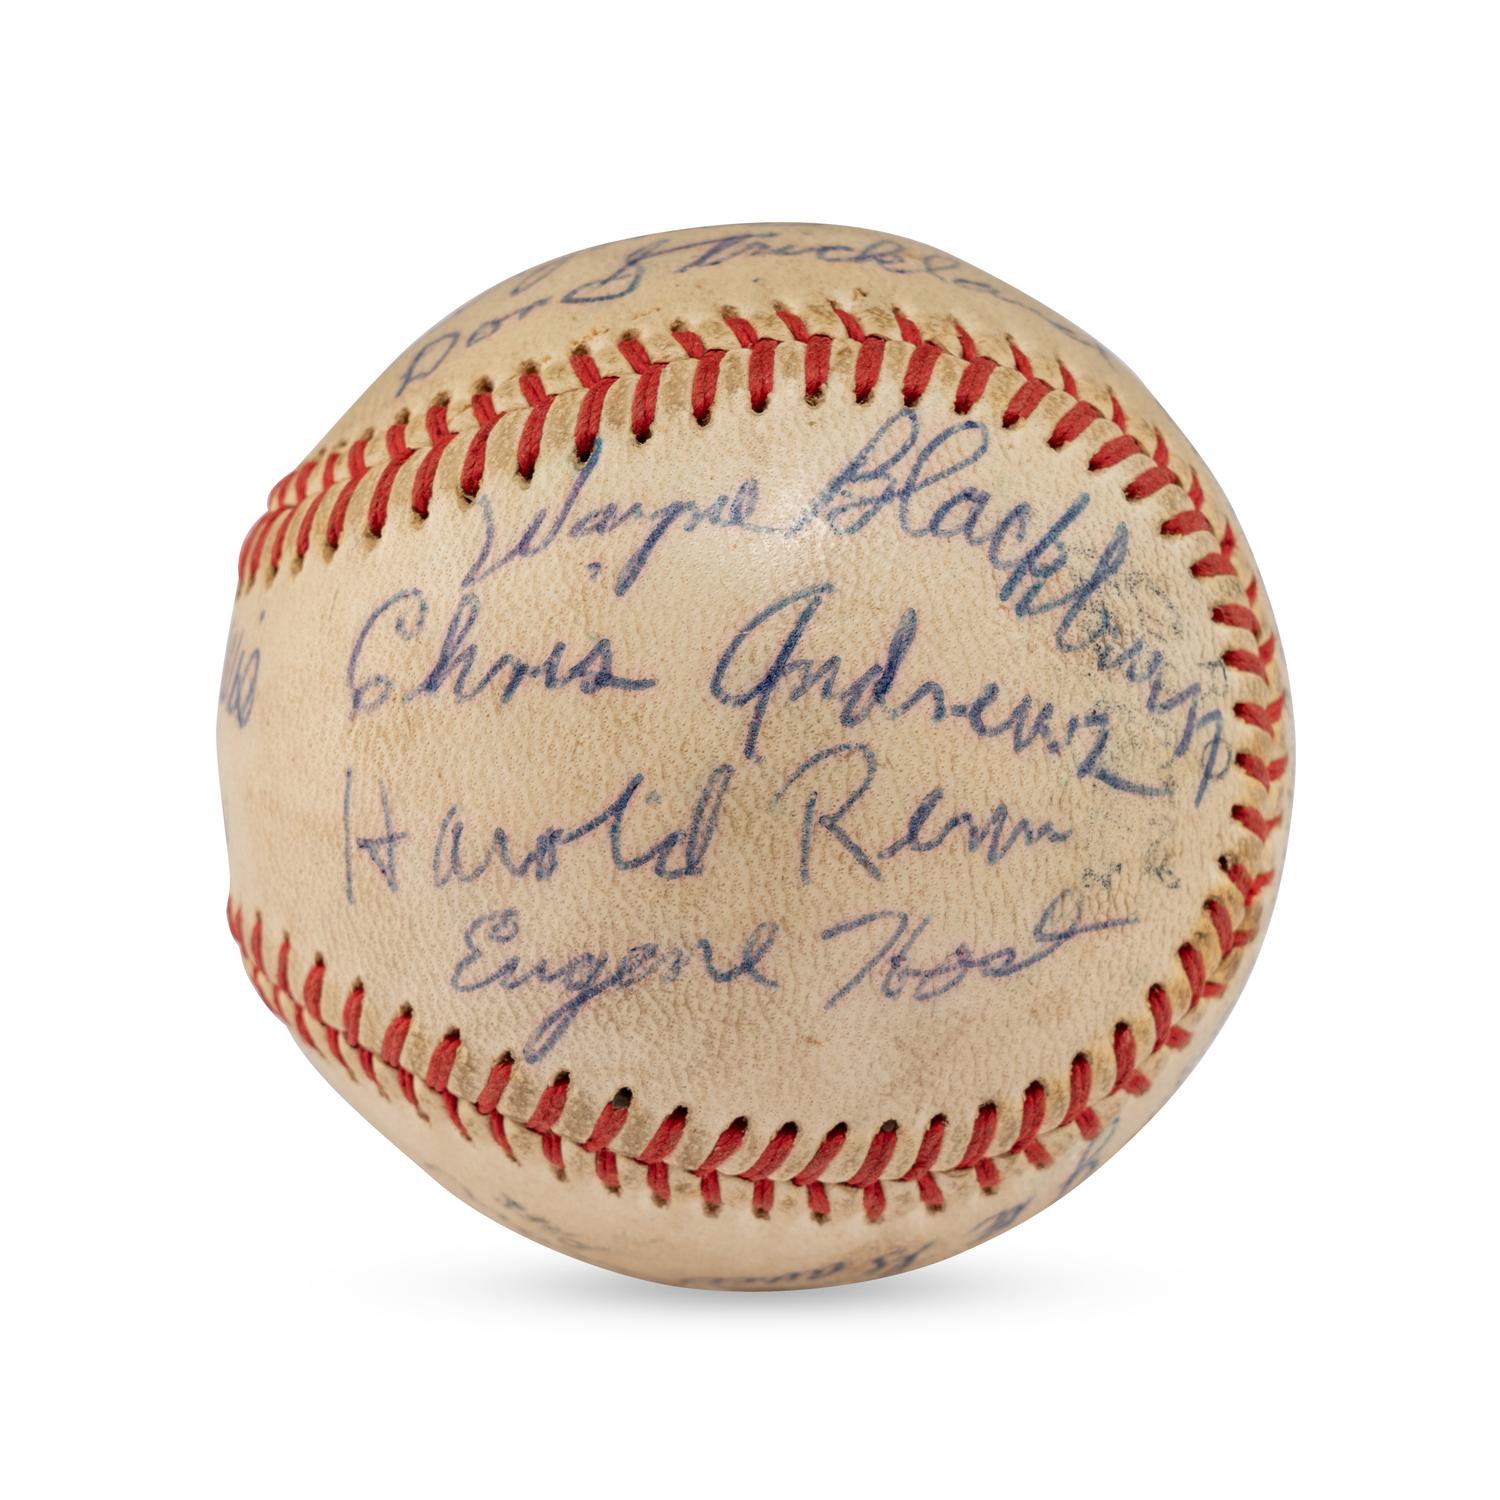 Don Strickland
Wayne Blackburn
Chris Andrews
Harold Renn
Eugene Host